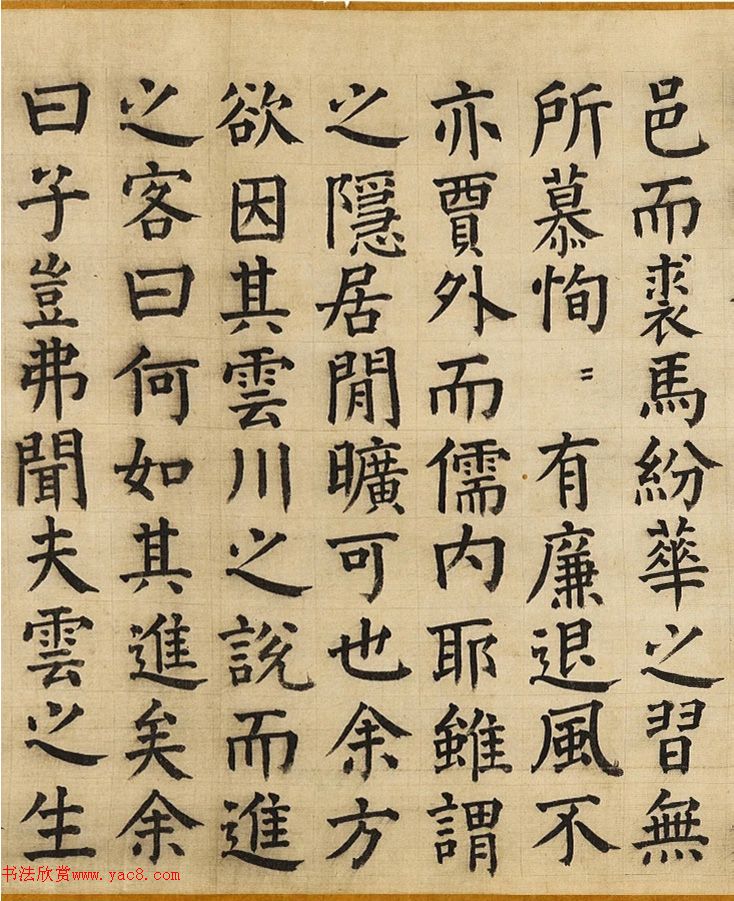 邑而裘馬紛華之習無
所慕恂〻有廉退風不
亦賈外而儒内耶雖謂
之隱居閒曠可也余方
欲因其雲川之説而進
之客曰何如其進矣余
曰子豈弗聞夫雲之生
书法欣赏www.yac8.com